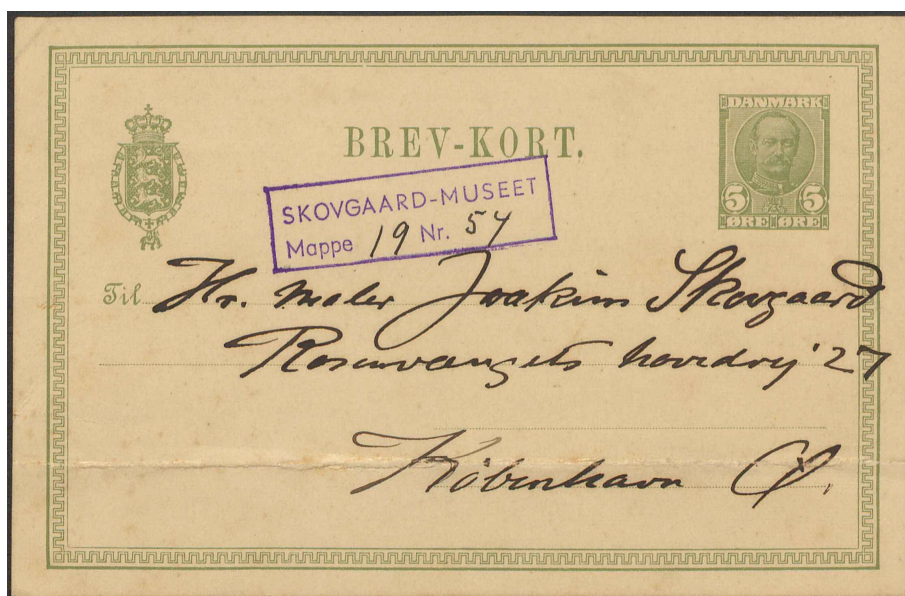 BREV-KORT.
DANMARK
5 5
ØRE ØRE
SKOVGAARD-MUSEET
Mappe 19 Nr. 54
Til Hr. Maler Joakim Skovgaard
Rosenvængets hovedvej 27
København Ø.